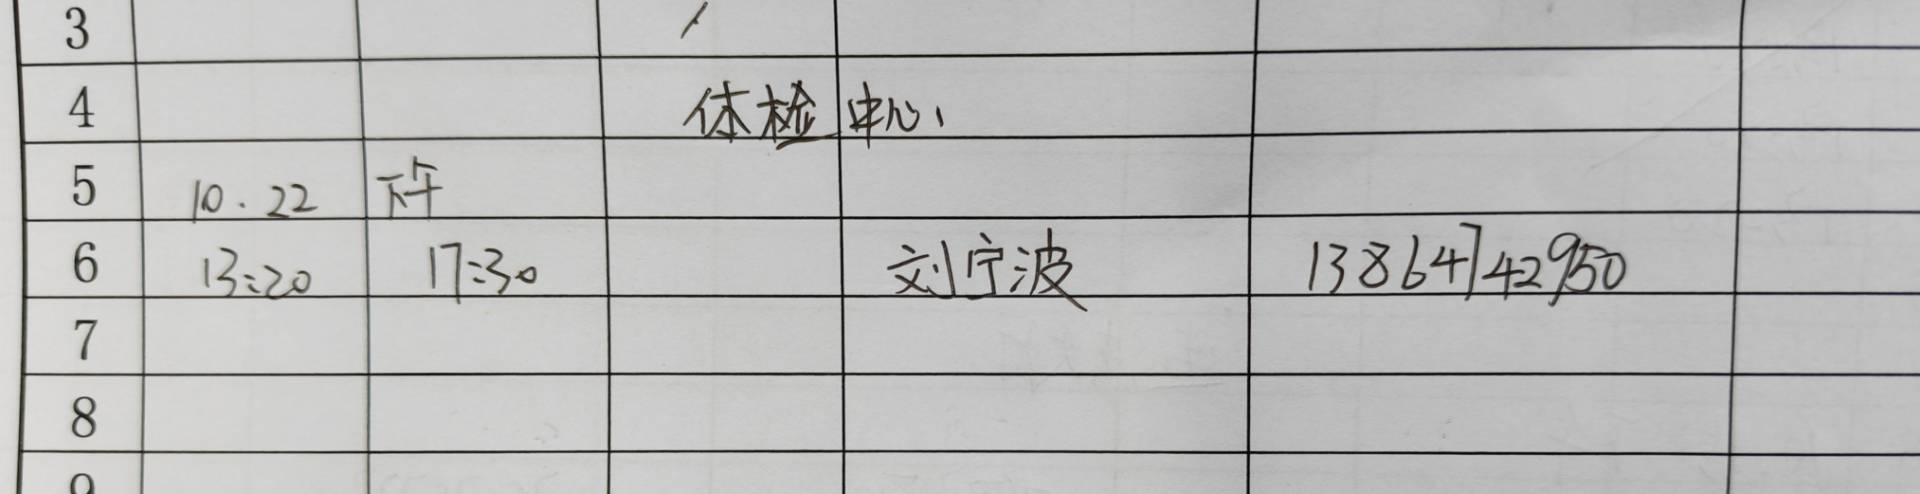 3
4 体检中心
5 10.22 下午
6 13:20 17:30 刘宁波 13864742950
7
8
9